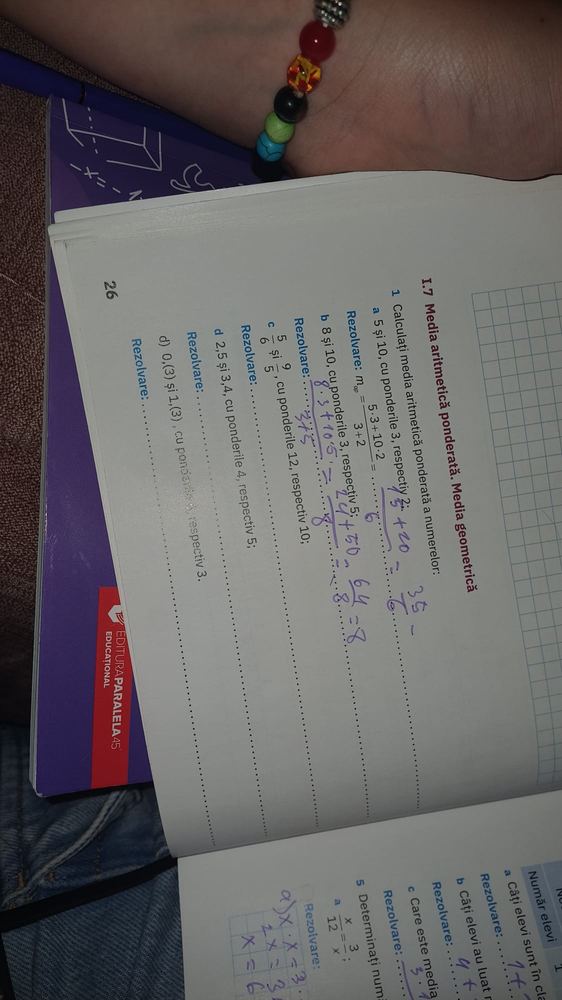 I.7 Media aritmetică ponderată. Media geometrică
1 Calculați media aritmetică ponderată a numerelor:
a 5 și 10, cu ponderile 3, respectiv 2;
Rezolvare: m_ap = (5·3+10·2)/(3+2) = (15+20)/6 = 35/6 -
b 8 și 10, cu ponderile 3, respectiv 5;
Rezolvare: (8·3+10·5)/(3+5) = (24+50)/8 = 64/8 = 8
c 5/6 și 9/5, cu ponderile 12, respectiv 10;
Rezolvare:
d 2,5 și 3,4, cu ponderile 4, respectiv 5;
Rezolvare:
d) 0,(3) și 1,(3), cu respectiv 3.
Rezolvare:
26
EDITURA PARALELA 45
EDUCAȚIONAL
Număr elevi
a Câți elevi sunt în
Rezolvare:
b Câți elevi au luat
Rezolvare:
c Care este media
Rezolvare:
5 Determinați
a x/12 = 3/x;
Rezolvare:
a) x · x = 3 ·
x = 6